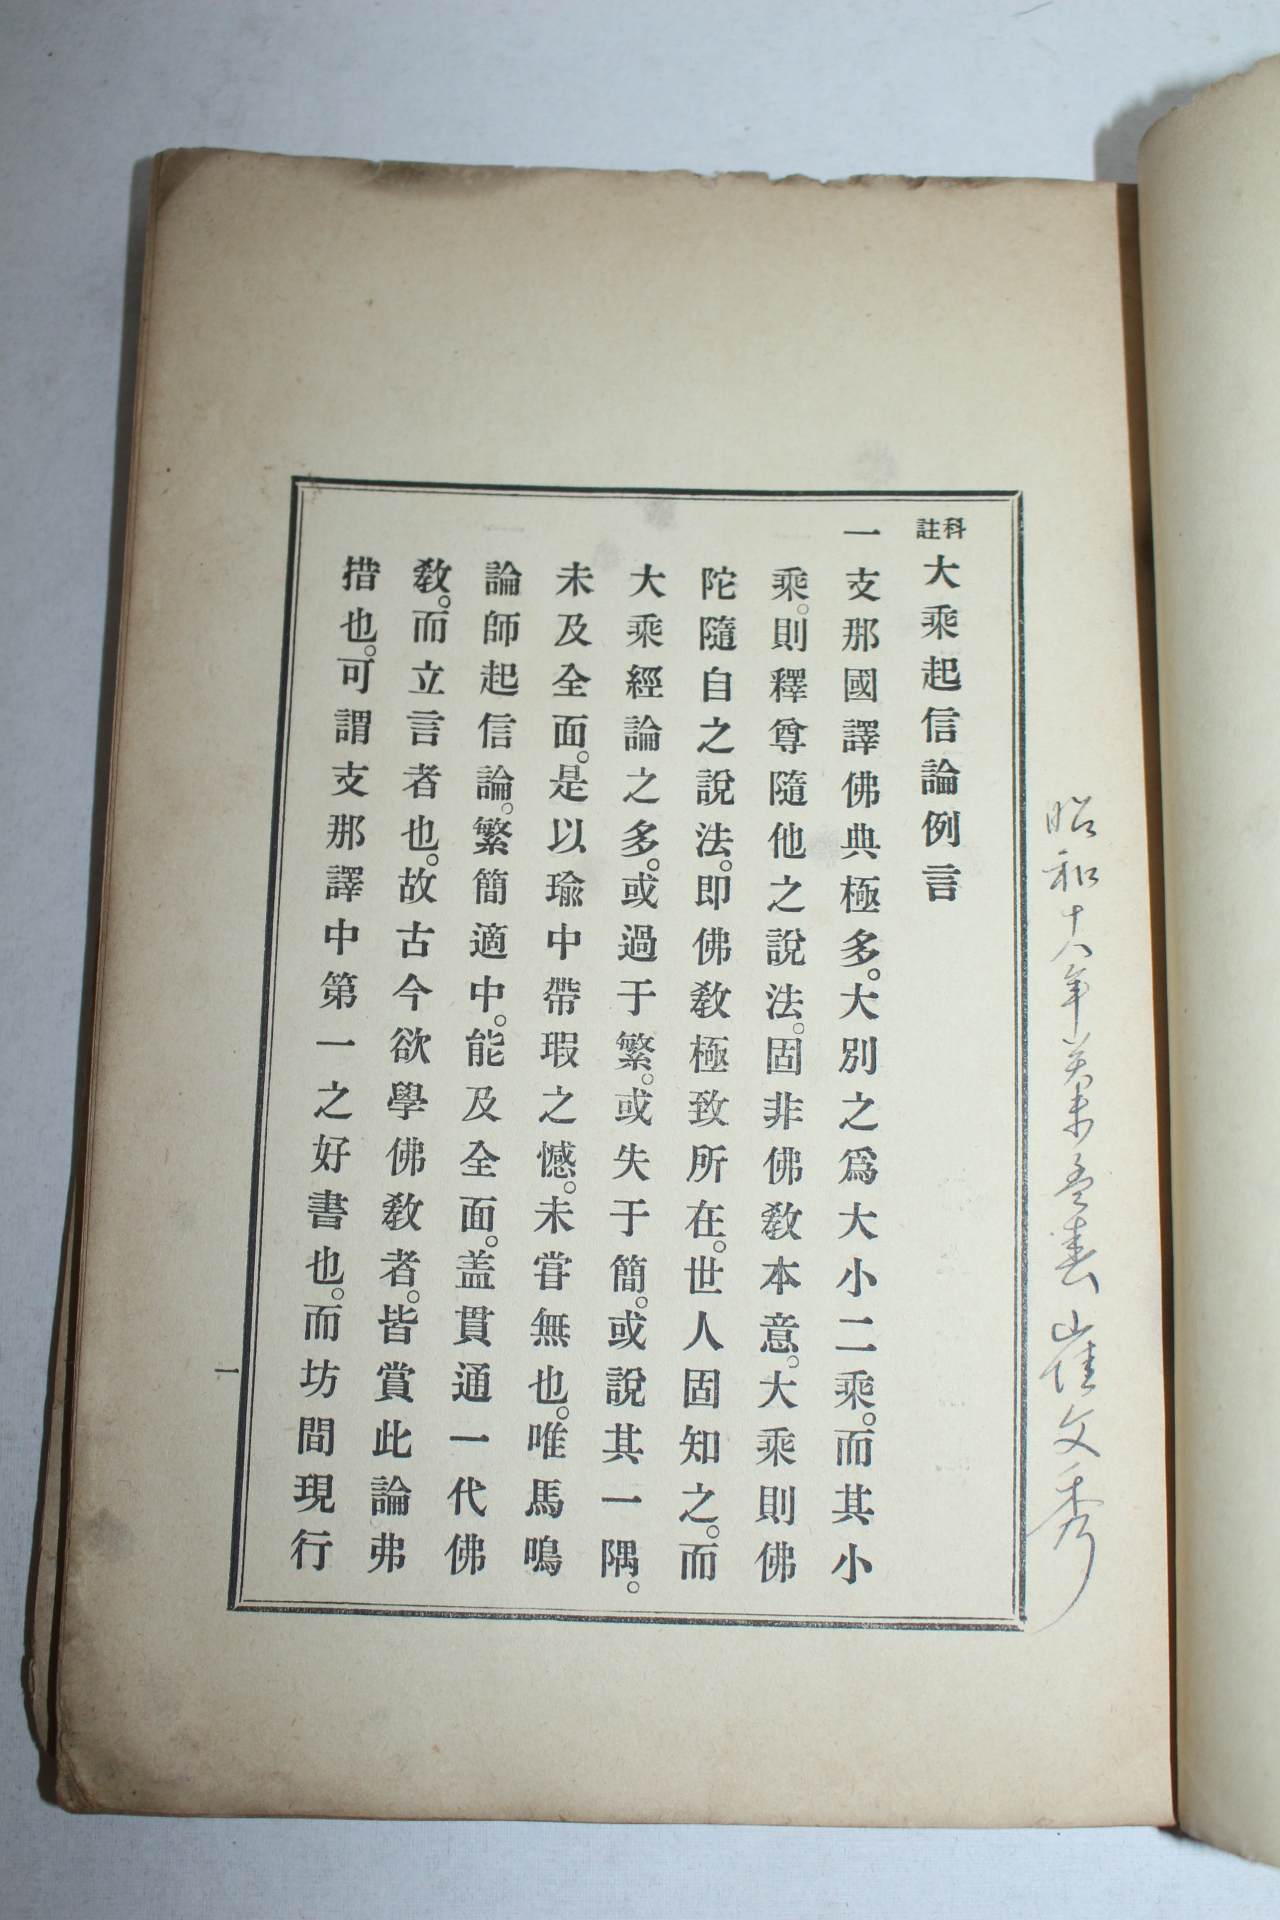 科註大乘起信論例言
一支那國譯佛典極多。大別之爲大小二乘。而其小
乘。則釋尊隨他之說法。固非佛敎本意。大乘則佛
陀隨自之說法。卽佛敎極致所在。世人固知之。而
大乘經論之多。或過于繁。或失于簡。或說其一隅。
未及全面。是以瑜中帶瑕之憾。未甞無也。唯馬鳴
論師起信論。繁簡適中。能及全面。盖貫通一代佛
敎。而立言者也。故古今欲學佛敎者。皆賞此論弗
措也。可謂支那譯中第一之好書也。而坊間現行
一
昭和十八年癸未孟春 崔文秀